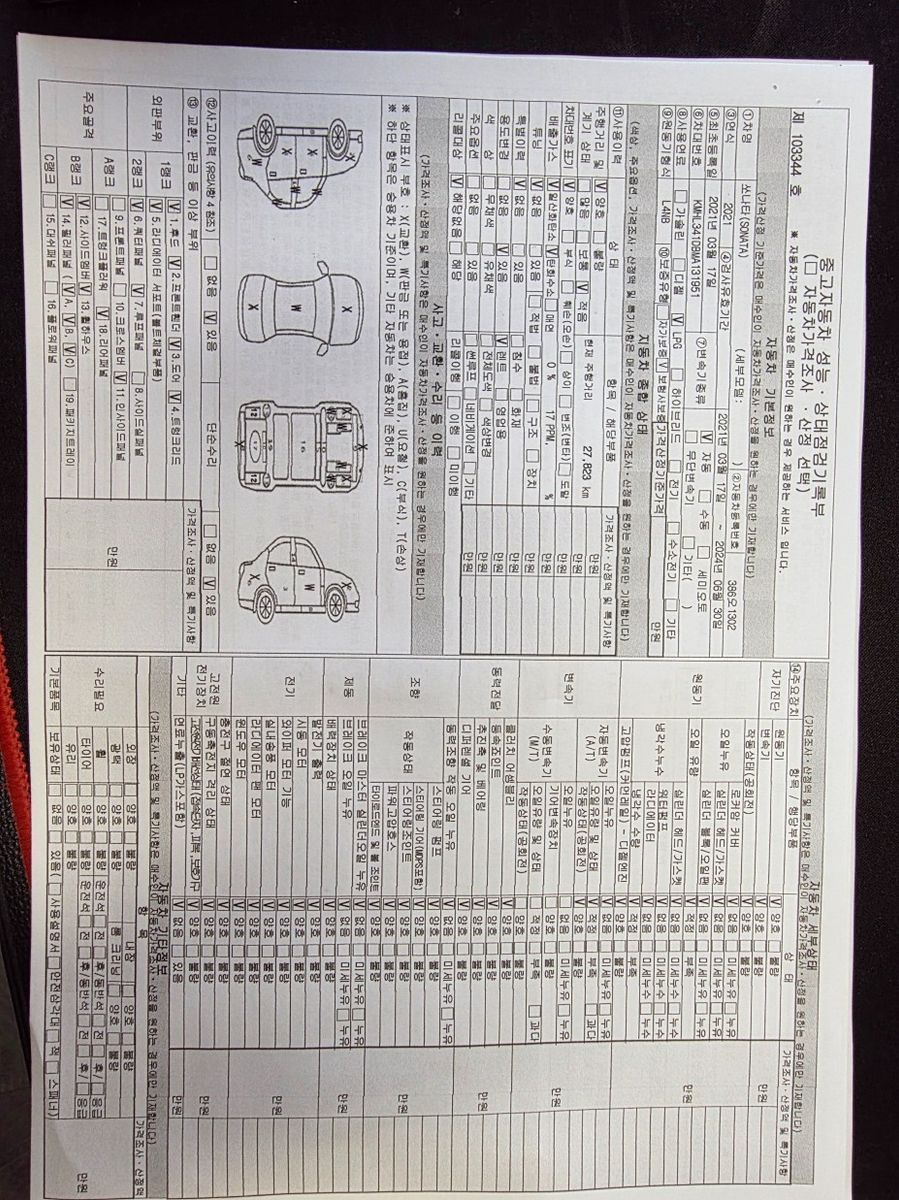 제 103344 호
중고자동차 성능·상태점검기록부
(□ 자동차가격조사·산정 선택)
※ 자동차가격조사·산정은 매수인이 원하는 경우 제공하는 서비스 입니다.
자동차 기본정보
(가격산정 기준가격은 매수인이 자동차가격조사·산정을 원하는 경우에만 기재합니다)
①차명 쏘나타(SONATA) (세부모델: ) ②자동차등록번호 386오1302
③연식 2021 ④검사유효기간 2021년 03월 17일 ~ 2024년 06월 30일
⑤최초등록일 2021년 03월 17일 ⑦변속기종류 V 자동 □ 수동 □ 세미오토
⑥차대번호 KMHL341DBMA131951 □ 무단변속기 □ 기타( )
⑧사용연료 □ 가솔린 □ 디젤 V LPG □ 하이브리드 □ 전기 □ 수소전기 □ 기타
⑨원동기형식 L4NB ⑩보증유형 □ 자가보증 V 보험사보증 가격산정기준가격 만원
자동차 종합 상태
(색상, 주요옵션, 가격조사·산정액 및 특기사항은 매수인이 자동차가격조사·산정을 원하는 경우에만 기재합니다)
⑪사용이력 상 태 항목 / 해당부품 가격조사·산정액 및 특기사항
주행거리 및 계기 상태 V 양호 □ 불량
□ 많음 □ 보통 V 적음 현재 주행거리 27,823 km 만원
차대번호 표기 V 양호 □ 부식 □ 훼손(오손) □ 상이 □ 변조(변타) □ 도말 만원
배출가스 V 일산화탄소 V 탄화수소 □ 매연 0 % 17 PPM, % 만원
튜닝 V 없음 □ 있음 □ 적법 □ 불법 □ 구조 □ 장치 만원
특별이력 V 없음 □ 있음 □ 침수 □ 화재 만원
용도변경 □ 없음 V 있음 V 렌트 □ 영업용 만원
색 상 □ 무채색 □ 유채색 □ 전체도색 □ 색상변경 만원
주요옵션 □ 없음 □ 있음 □ 썬루프 □ 네비게이션 □ 기타 만원
리콜대상 V 해당없음 □ 해당 리콜이행 □ 이행 □ 미이행
사고·교환·수리 등 이력
(가격조사·산정액 및 특기사항은 매수인이 자동차가격조사·산정을 원하는 경우에만 기재합니다)
※ 상태표시 부호 : X(교환), W(판금 또는 용접), A(흠집), U(요철), C(부식), T(손상)
※ 하단 항목은 승용차 기준이며, 기타 자동차는 승용차에 준하여 표시
⑫사고이력 (유의사항 4 참조) □ 없음 V 있음 단순수리 □ 없음 V 있음
⑬ 교환, 판금 등 이상 부위 가격조사·산정액 및 특기사항
외판부위 1랭크 V 1.후드 V 2.프론트휀더 V 3.도어 V 4.트렁크리드
V 5.라디에이터 서포트(볼트체결부품)
2랭크 V 6.쿼터패널 V 7.루프패널 □ 8.사이드실패널
주요골격 A랭크 □ 9.프론트패널 □ 10.크로스멤버 V 11.인사이드패널
□ 17.트렁크플로어 V 18.리어패널
B랭크 V 12.사이드멤버 V 13.휠하우스
V 14.필러패널 (V A, V B, V C) □ 19.패키지트레이
C랭크 □ 15.대쉬패널 □ 16.플로어패널
만원
자동차 세부상태
(가격조사·산정액 및 특기사항은 매수인이 자동차가격조사·산정을 원하는 경우에만 기재합니다)
⑭주요장치 항목 / 해당부품 상 태 가격조사·산정액 및 특기사항
자기진단 원동기 V 양호 □ 불량 만원
변속기 V 양호 □ 불량
원동기 작동상태(공회전) V 양호 □ 불량 만원
오일누유 로커암 커버 V 없음 □ 미세누유 □ 누유
실린더 헤드/가스켓 V 없음 □ 미세누유 □ 누유
실린더 블록/오일팬 V 없음 □ 미세누유 □ 누유
오일 유량 V 적정 □ 부족
냉각수누수 실린더 헤드/가스켓 V 없음 □ 미세누수 □ 누수
워터펌프 V 없음 □ 미세누수 □ 누수
라디에이터 V 없음 □ 미세누수 □ 누수
냉각수 수량 V 적정 □ 부족
고압펌프(커먼레일) - 디젤엔진 □ 양호 □ 불량
변속기 자동변속기 (A/T) 오일누유 V 없음 □ 미세누유 □ 누유 만원
오일유량 및 상태 V 적정 □ 부족 □ 과다
작동상태(공회전) V 양호 □ 불량
수동변속기 (M/T) 오일누유 □ 없음 □ 미세누유 □ 누유
기어변속장치 □ 양호 □ 불량
오일유량 및 상태 □ 적정 □ 부족 □ 과다
작동상태(공회전) □ 양호 □ 불량
동력전달 클러치 어셈블리 V 양호 □ 불량 만원
등속조인트 V 양호 □ 불량
추진축 및 베어링 V 양호 □ 불량
디퍼렌셜 기어 V 양호 □ 불량
조향 동력조향 작동 오일 누유 V 없음 □ 미세누유 □ 누유 만원
작동상태 스티어링 펌프 V 양호 □ 불량
스티어링 기어(MDPS포함) V 양호 □ 불량
스티어링조인트 V 양호 □ 불량
파워고압호스 V 양호 □ 불량
타이로드엔드 및 볼 조인트 V 양호 □ 불량
제동 브레이크 마스터 실린더오일 누유 V 없음 □ 미세누유 □ 누유 만원
브레이크 오일 누유 V 없음 □ 미세누유 □ 누유
배력장치 상태 V 양호 □ 불량
전기 발전기 출력 V 양호 □ 불량 만원
시동 모터 V 양호 □ 불량
와이퍼 모터 기능 V 양호 □ 불량
실내송풍 모터 V 양호 □ 불량
라디에이터 팬 모터 V 양호 □ 불량
윈도우 모터 V 양호 □ 불량
고전원 전기장치 충전구 절연 상태 □ 양호 □ 불량 만원
구동축전지 격리 상태 □ 양호 □ 불량
고전원전기배선 상태(접속단자, 피복, 보호기구) □ 양호 □ 불량
기타 연료누출(LP가스포함) V 없음 □ 있음 만원
자동차 기타정보
(가격조사·산정액 및 특기사항은 매수인이 자동차가격조사·산정을 원하는 경우에만 기재합니다)
항 목 가격조사·산정액
수리필요 외장 □ 양호 □ 불량 내장 □ 양호 □ 불량 만원
광택 □ 양호 □ 불량 룸 크리닝 □ 양호 □ 불량
휠 □ 양호 □ 불량 운전석 □ 전 □ 후, 동반석 □ 전 □ 후/ □ 응급
타이어 □ 양호 □ 불량 운전석 □ 전 □ 후, 동반석 □ 전 □ 후/ □ 응급
유리 □ 양호 □ 불량
기본품목 보유상태 □ 없음 □ 있음 (□ 사용설명서 □ 안전삼각대 □ 잭 □ 스패너)